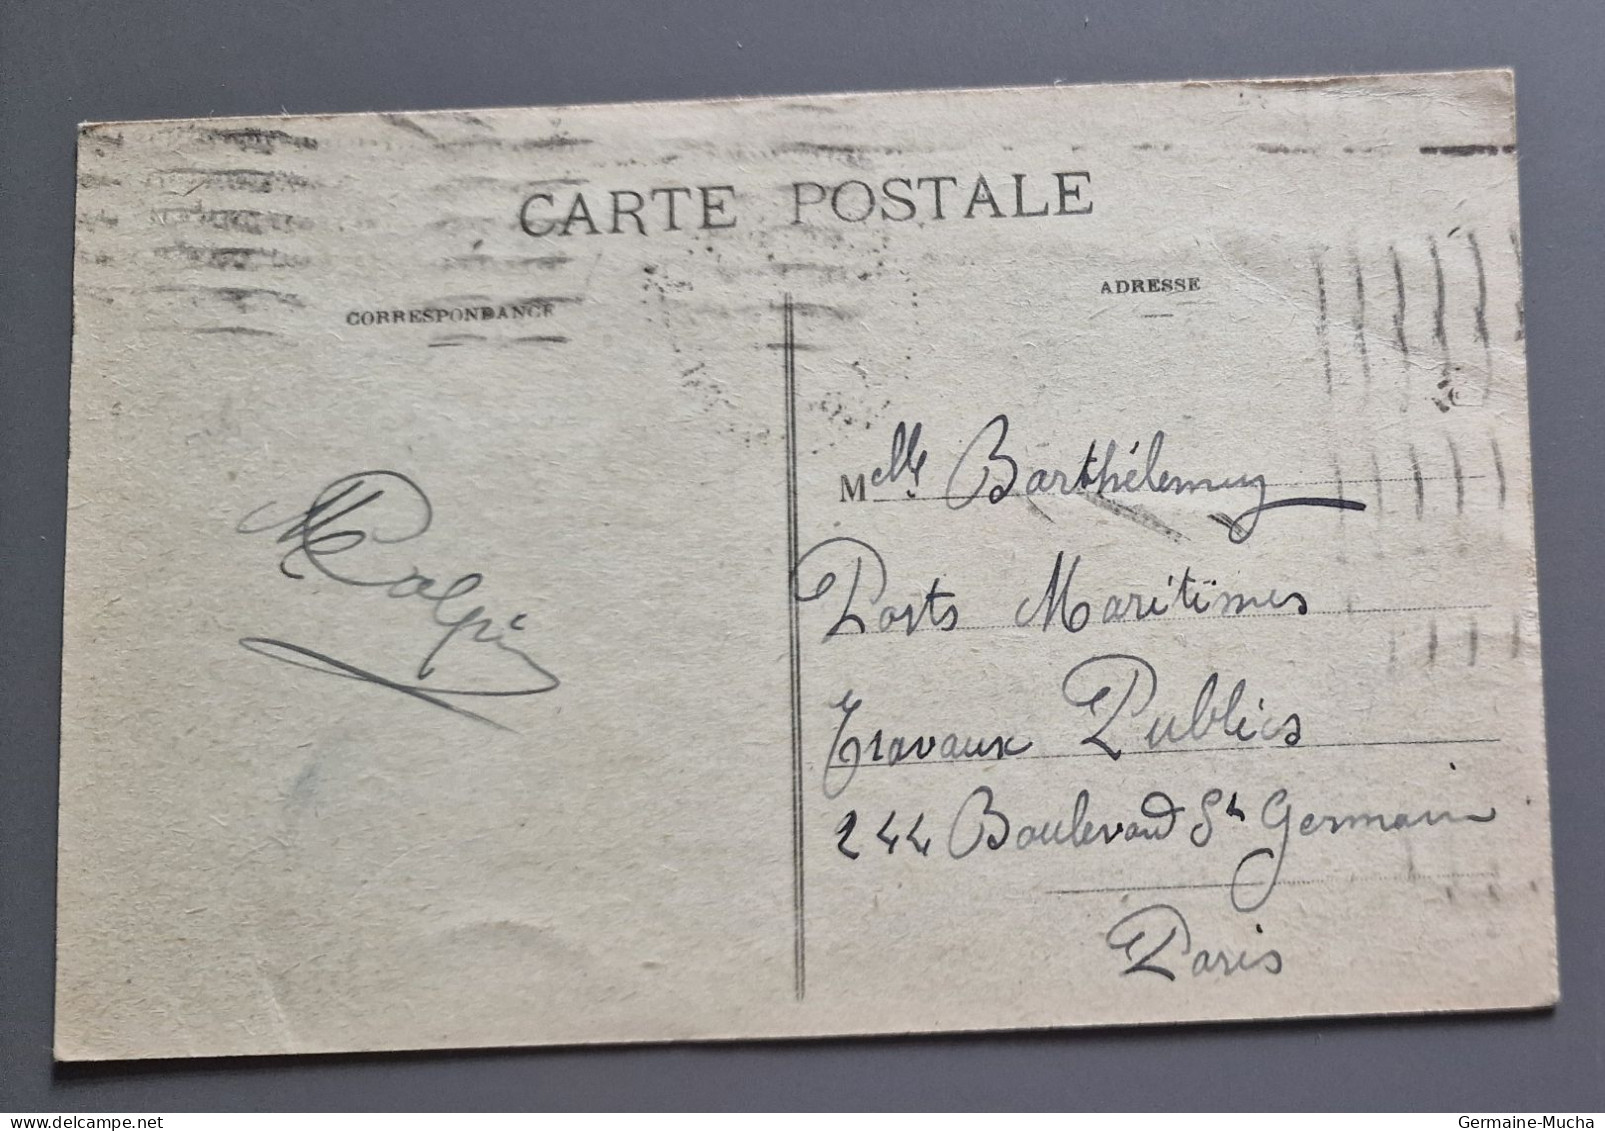 CARTE POSTALE
CORRESPONDANCE
ADRESSE
Melle Barthélemy
Ports Maritimes
Travaux Publics
244 Boulevard St Germain
Paris
delcampe.net
Germaine-Mucha